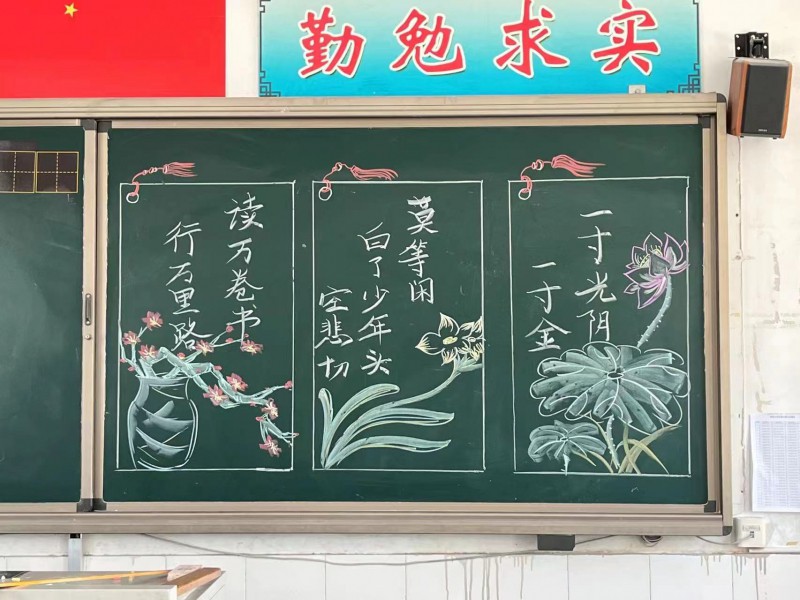 勤勉求实
读万卷书
行万里路
莫等闲
白了少年头
空悲切
一寸光阴
一寸金